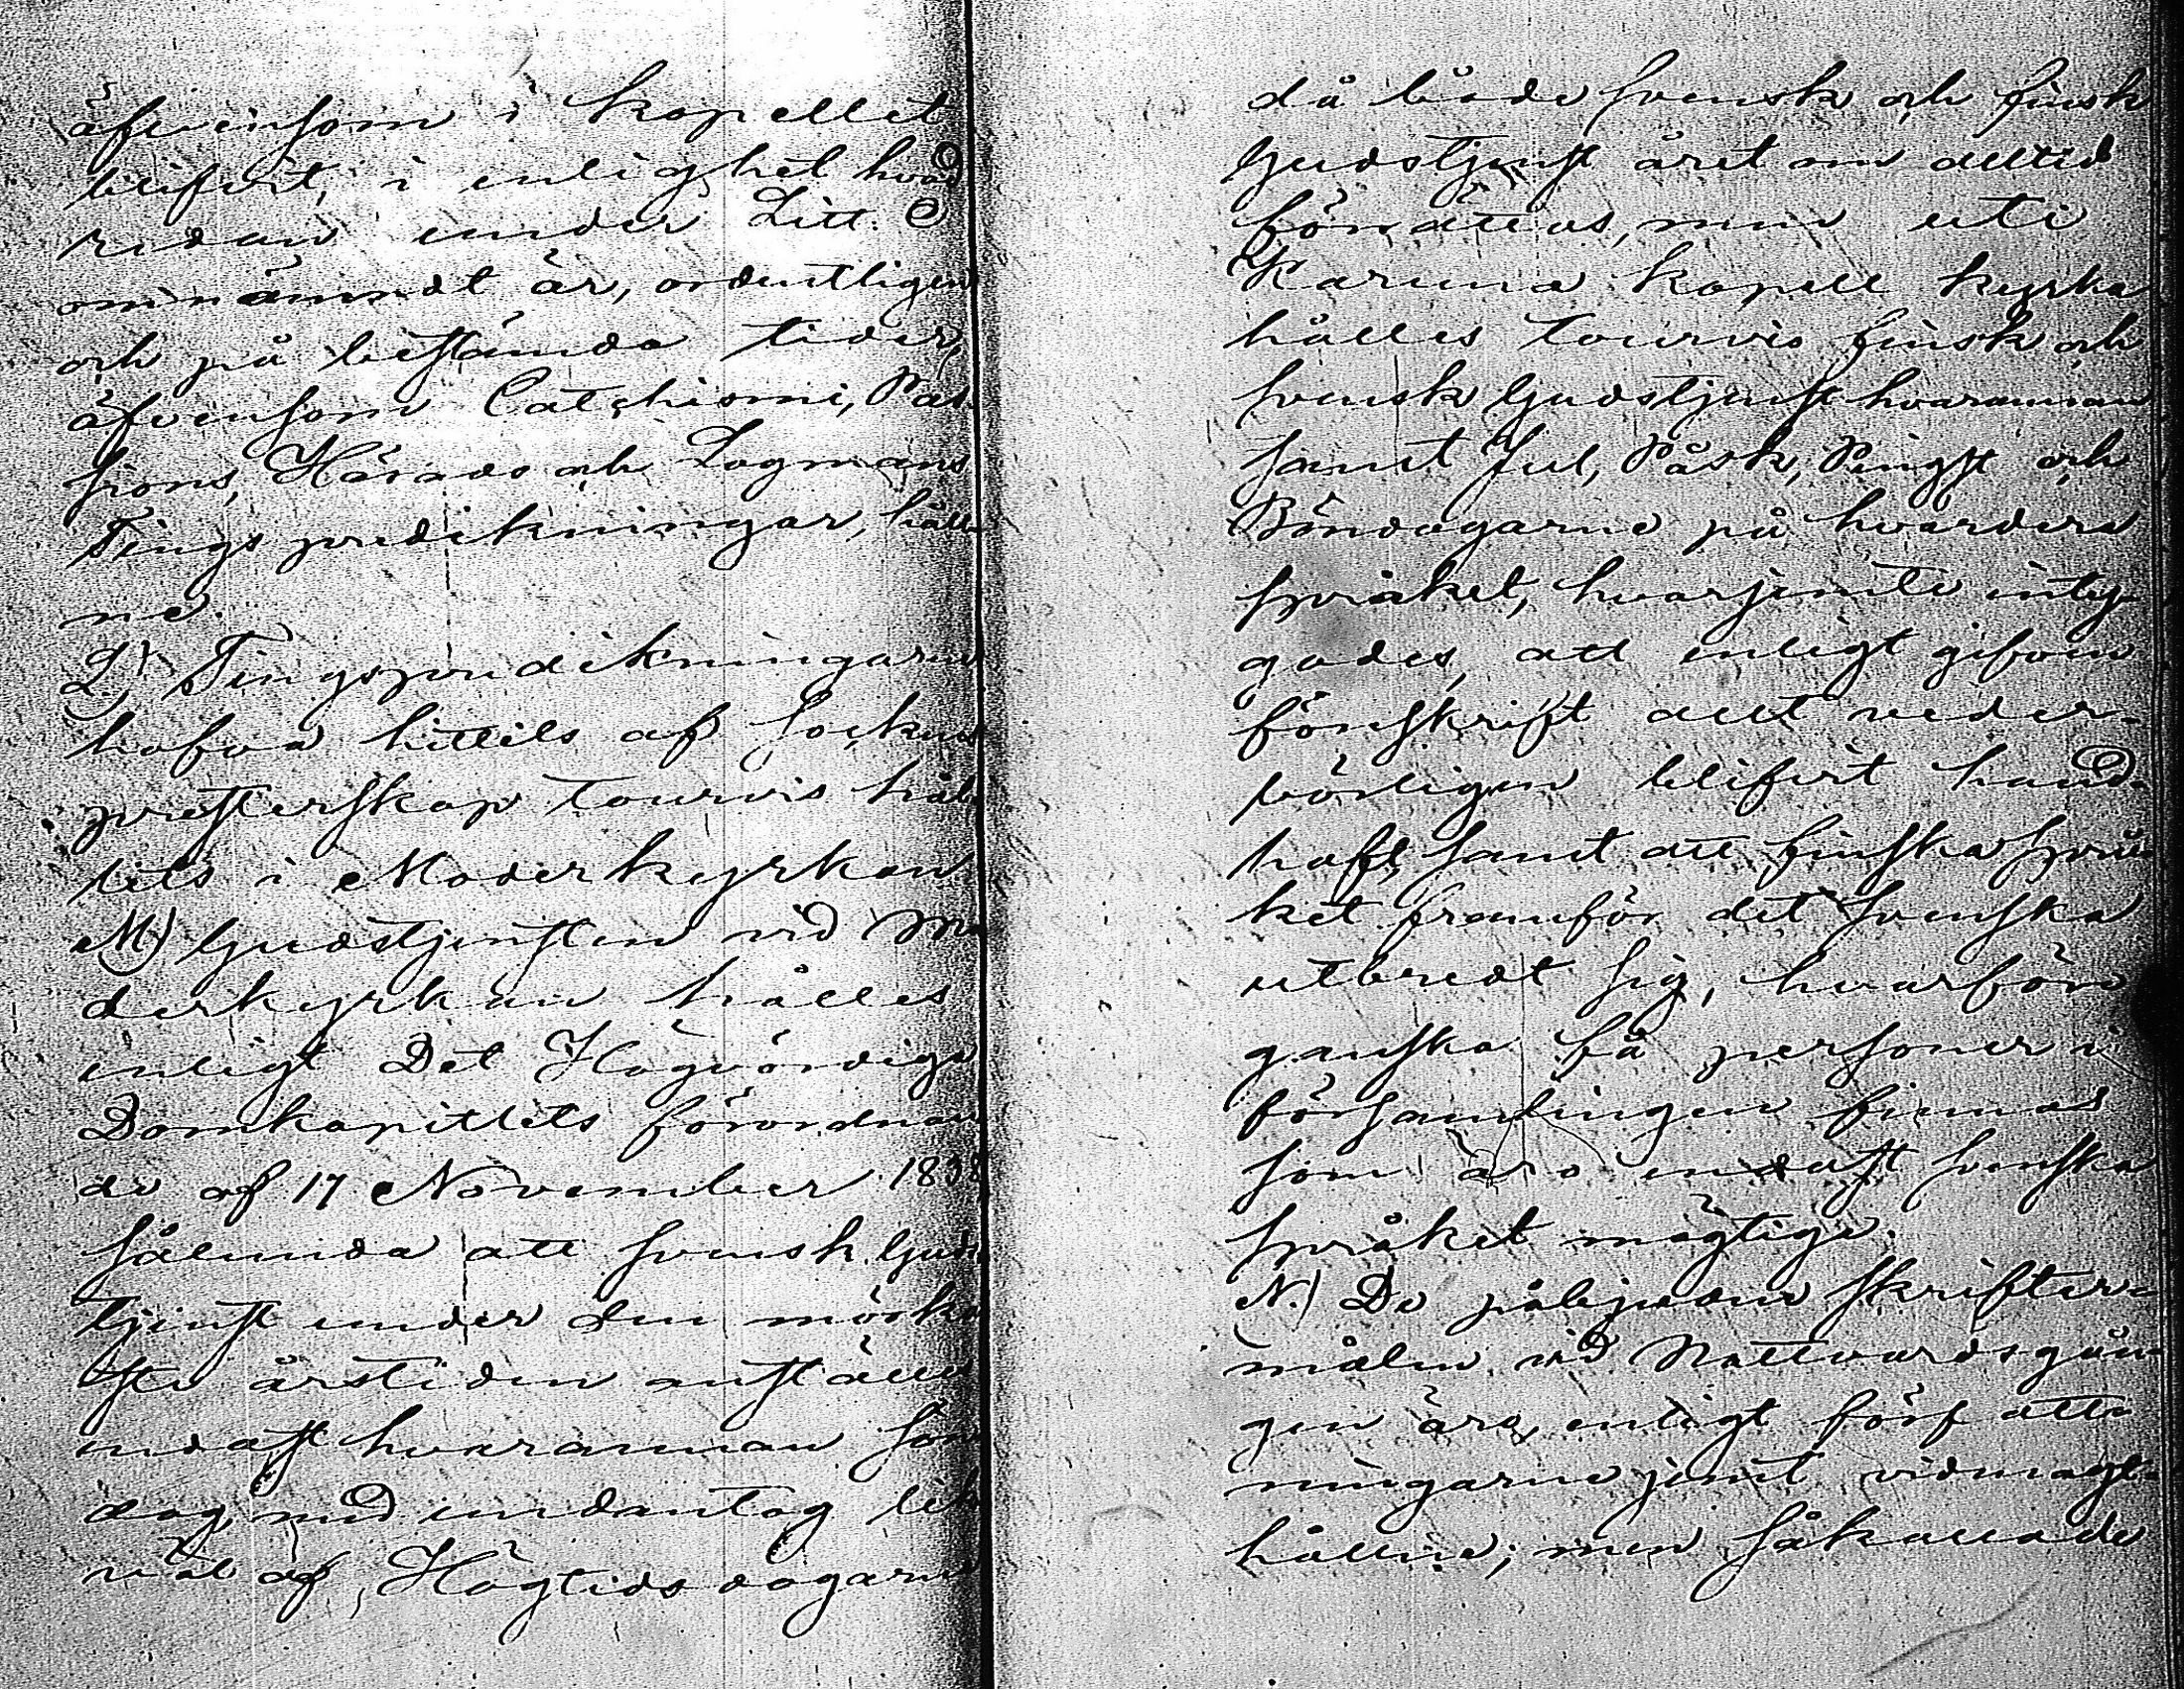 äfvensom i kapellet
blifvit, i enlighet hvad
redan under Litt. C
omnämndt är, ordentligen
och på bestämda tider,
äfvensom Catchismi, Pas
sions, Härads och Lagmans
Tings predikningar, håll
ne.
L.) Tingspredikningarne
hafva hittils af Sockens
presterskap tourvis hål
lits i Moderkyrkan
M) Gudstjensten vid Mo
derkyrkan hålles
enligt Det Högvördige
Domkapitlets förordnan
de af 17 November 1838
sålunda att svensk Guds
tjenst under den mörka
ste årstiden anställes
endast hvarannan Sön
dag, med undantag lik
väl af Högtidsdagarne
då både svensk och finsk
Gudstjenst året om alltid
förrättas, men uti
Karuna kapell kyrka
hålles tourvis finsk och
svensk Gudstjenst hvarannan
samt Jul, Påsk, Pingst och
Böndagarne på hvardera
språket, hvarjemte intyg
gades, att enligt gifven
förskrift allt veder-
börligen blifvit hand-
haft, samt att finska språ
ket framför det svenska
utbredt sig, hvarföre
ganska få personer i
församlingen finnas
som äro endast svenska
språket mägtige.
N.) De påbjudne skrifter-
målen vid Nattvardsgån
gen äro, enligt författ-
ningarne jemt vidmagt-
hållne; men såkallade